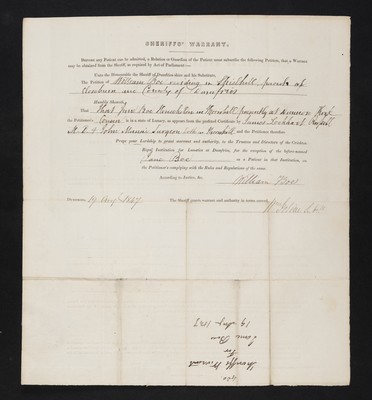 SHERIFFS' WARRANT.
Before any Patient can be admitted, a Relation or Guardian of the Patient must subscribe the following Petition, that a Warrant
may be obtained from the Sheriff, as required by Act of Parliament:—
Unto the Honourable the Sheriff of Dumfries-shire and his Substitute,
The Petition of William Boe residing in parish of
and County of Dumfries
Humbly Sheweth,
That Jane Boe Thornhill presently at
the Petitioner's is in a state of Lunacy, as appears from the prefixed Certificate by James Lockhart
M.D. & John Surgeon both in Thornhill and the Petitioner therefore
Prays your Lordship to grant warrant and authority, to the Trustees and Directors of the Crichton
Royal Institution for Lunatics at Dumfries, for the reception of the before-named
Jane Boe as a Patient in that Institution, on
the Petitioner complying with the Rules and Regulations of the same.
According to Justice, &c.
William Boe
Dumfries, 19 Augt 1847 The Sheriff grants warrant and authority in terms craved.
Sheriffs Warrant
For
Jane Boe
19 Aug. 1847